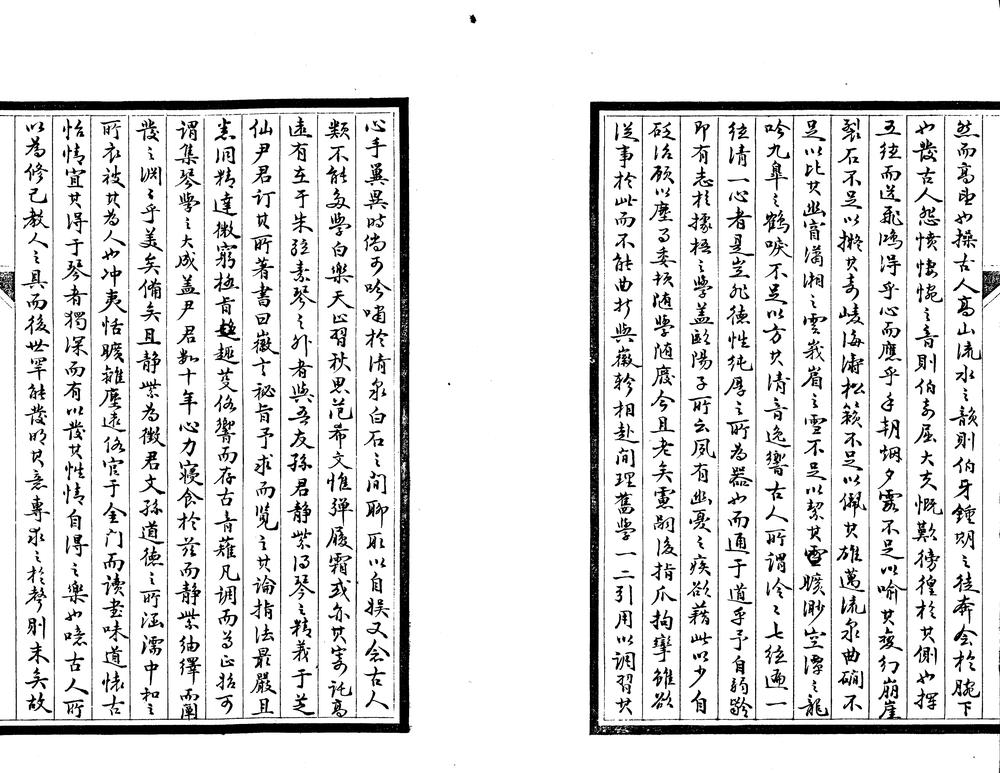 然而高也操古人高山流水之韻則伯牙鍾期之徒奔會於腕下
也發古人怨憤悽惋之音則伯奇屈大夫慨歎徬徨於其側也揮
五絃而送飛鴻得乎心而應乎手朝烟夕靄不足以喻其變幻崩崖
裂石不足以擬其奇峻海濤松籟不足以佩其雄邁流泉曲磵不
足以比其幽窅瀟湘之雲峩嵋之雪不足以絜其曠渺空潭之龍
吟九臯之鶴唳不足以方其清音逸響古人所謂泠泠七絃遍一
絃清一心者是豈非德性純厚之所為器也而通于道乎予自弱齡
即有志於據梧之學蓋歐陽子所云夙有幽憂之疾欲藉此以少自
砭治顧以塵丏委頓隨學隨廢今且老矣慮嗣後指爪拘攣雖欲
從事於此而不能曲折與徽軫相赴間理舊學一二引用以調習其
心手翼異時倘可吟嘯於清泉白石之間聊取以自娛又念古人
類不能多學白樂天止習秋思范希文惟彈履霜或亦其寄託高
遠有在于朱絃素琴之外者與吾友孫君靜紫得琴之精義于芝
仙尹君訂其所著書曰徽言秘旨予求而覽之其論指法最嚴且
悉洞精達微窮極旨趣芟俗響而存古音薙凡調而為正始可
謂集琴學之大成蓋尹君數十年心力寢食於茲而靜紫紬繹而闡
發之淵淵乎美矣備矣且靜紫為徵君文孫道德之所涵濡中和之
所衣被其為人也冲夷恬曠離塵遠俗官于金门而读書味道懷古
怡情宜其得于琴者獨深而有以發其性情自得之樂也噫古人所
以為修己教人之具而後世罕能發明其意專求之於聲則末矣故